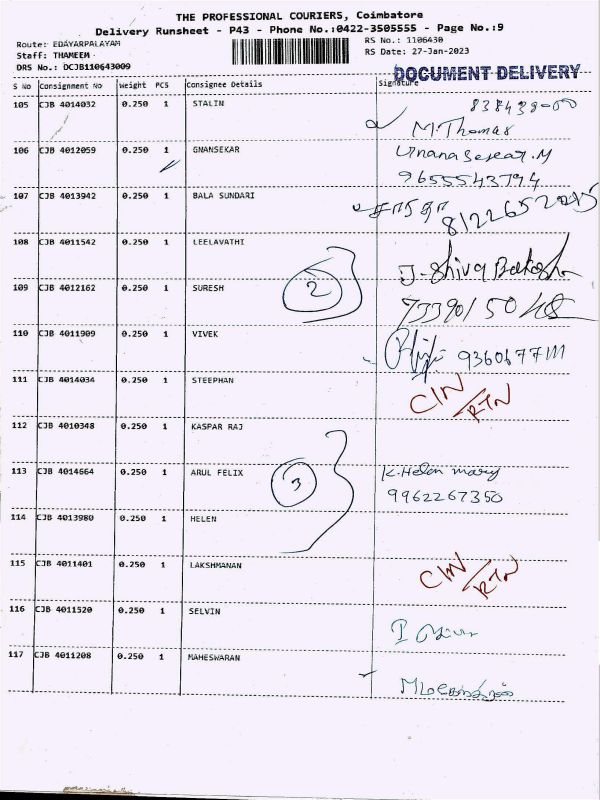 THE PROFESSIONAL COURIERS, Coimbatore
Delivery Runsheet - P43 - Phone No.:0422-3505555 - Page No.:9
Route: EDAYARPALAYAM RS No.: 1106430
Staff: THAMEEM RS Date: 27-Jan-2023
DRS No.: DCJB110643009
DOCUMENT DELIVERY
S No Consignment No Weight PCS Consignee Details Signature
105 CJB 4014032 0.250 1 STALIN
M.Thomas
106 CJB 4012059 0.250 1 GNANSEKAR
9655543794
107 CJB 4013942 0.250 1 BALA SUNDARI
சாந்தா
108 CJB 4011542 0.250 1 LEELAVATHI
2
109 CJB 4012162 0.250 1 SURESH
110 CJB 4011909 0.250 1 VIVEK
111 CJB 4014034 0.250 1 STEEPHAN
CIN/RTN
112 CJB 4010348 0.250 1 KASPAR RAJ
113 CJB 4014664 0.250 1 ARUL FELIX K.Helen mary
3 9962267350
114 CJB 4013980 0.250 1 HELEN
115 CJB 4011401 0.250 1 LAKSHMANAN
CIN/RTN
116 CJB 4011520 0.250 1 SELVIN
117 CJB 4011208 0.250 1 MAHESWARAN